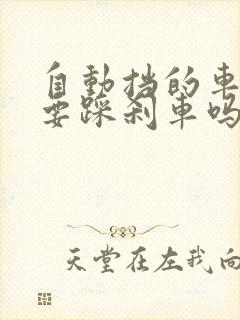 自動挡的車
要踩刹車吗
天堂在左我向